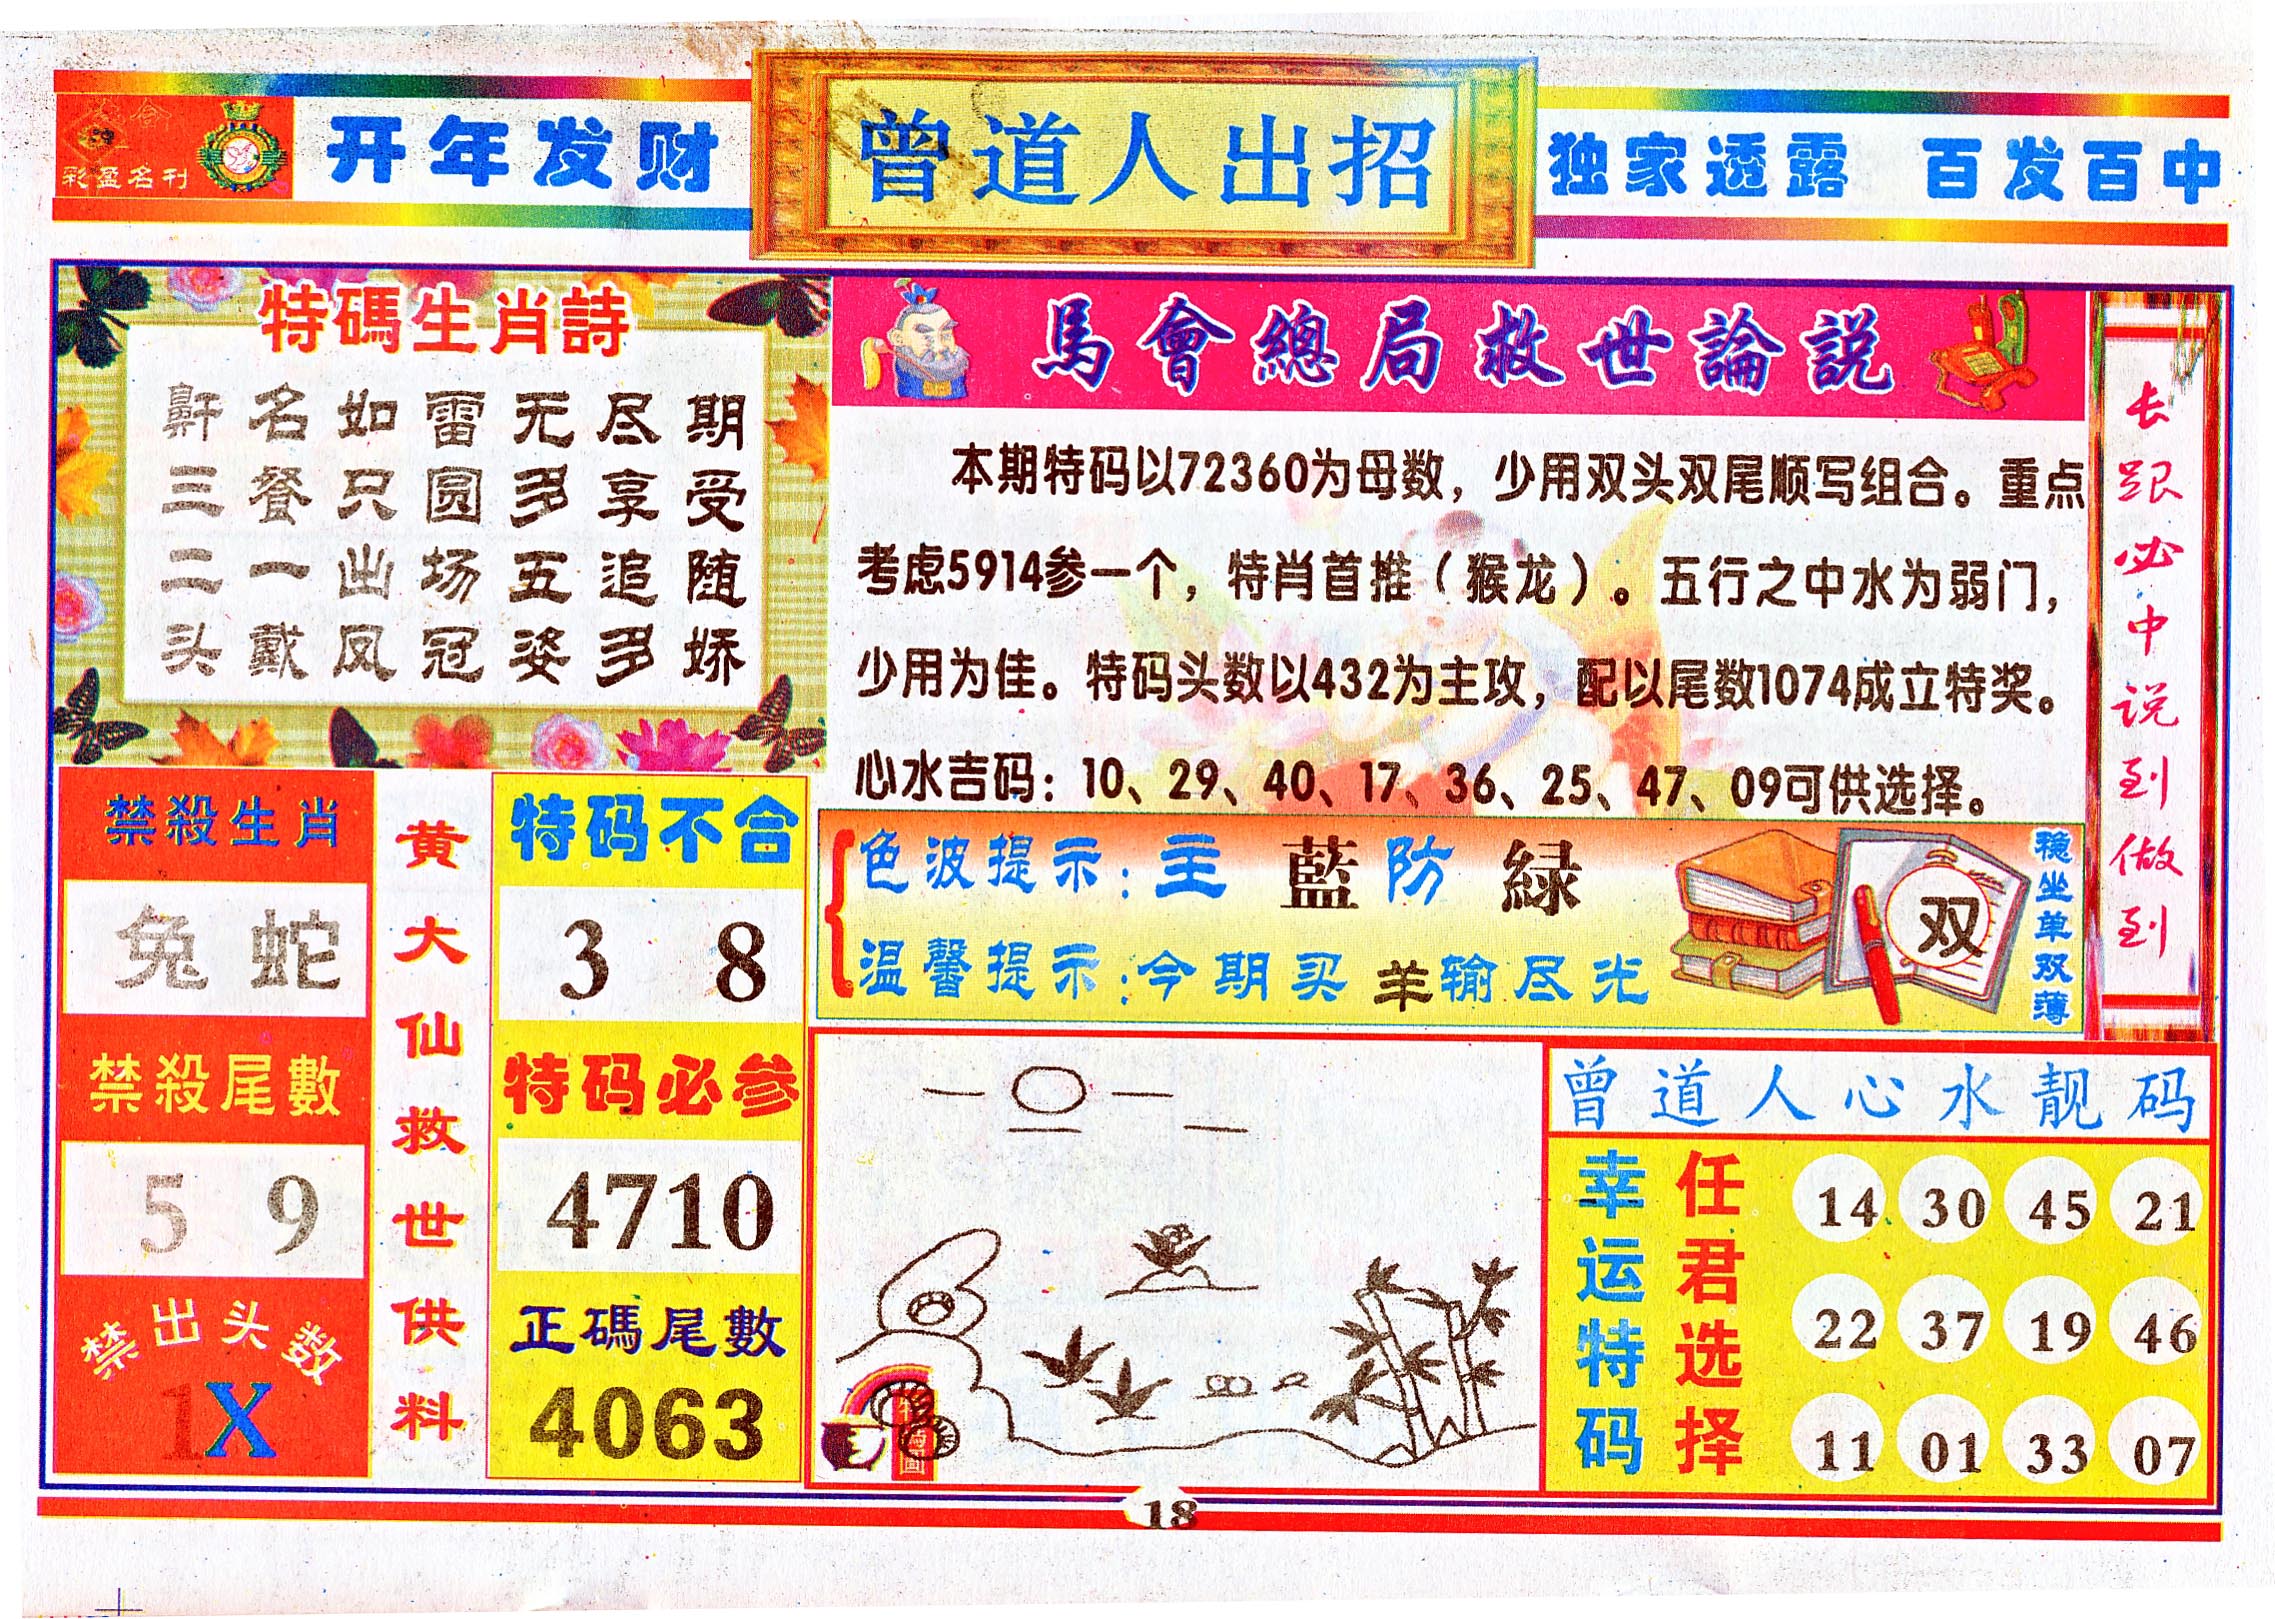 彩盈名刊
开年发财
曾道人出招
独家透露 百发百中
特碼生肖詩
鼾名如雷无尽期
三餐只圆多享受
二一出场五追随
头戴凤冠姿多娇
馬會總局救世論説
本期特码以72360为母数，少用双头双尾顺写组合。重点
考虑5914参一个，特肖首推（猴龙）。五行之中水为弱门，
少用为佳。特码头数以432为主攻，配以尾数1074成立特奖。
心水吉码：10、29、40、17、36、25、47、09可供选择。
长跟必中说到做到
禁殺生肖
兔 蛇
禁殺尾數
5 9
禁出头数
1X
黄大仙救世供料
特码不合
3 8
特码必参
4710
正碼尾數
4063
色波提示：主藍防緑
温馨提示：今期买羊输尽光
双
稳坐单双薄
曾道人心水靓码
幸运特码
任君选择
14 30 45 21
22 37 19 46
11 01 33 07
18